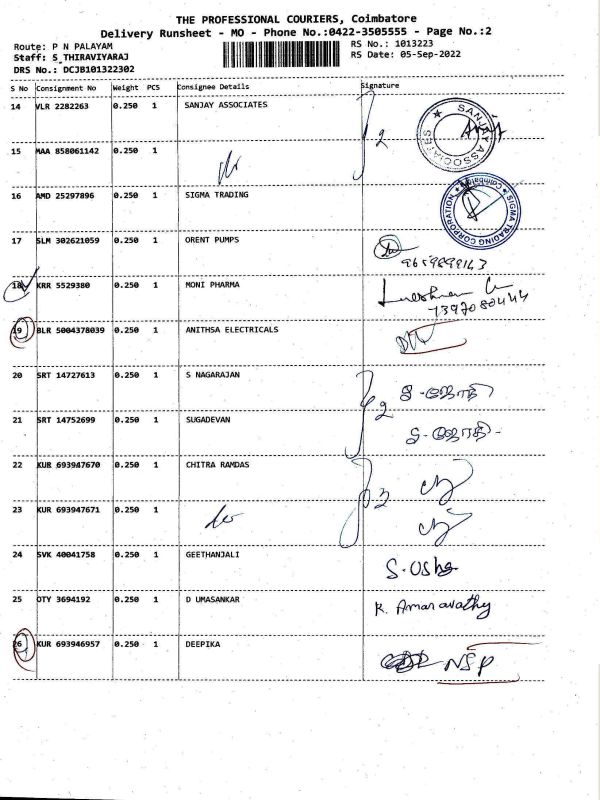 THE PROFESSIONAL COURIERS, Coimbatore
Delivery Runsheet - MO - Phone No.:0422-3505555 - Page No.:2
Route: P N PALAYAM
RS No.: 1013223
Staff: S THIRAVIYARAJ
RS Date: 05-Sep-2022
DRS No.: DCJB101322302
S No Consignment No Weight PCS Consignee Details Signature
14 VLR 2282263 0.250 1 SANJAY ASSOCIATES 2
SANJAY ASSOCIATES
15 MAA 858061142 0.250 1
16 AMD 25297896 0.250 1 SIGMA TRADING
SIGMA TRADING CORPORATION Coimbatore
17 SLM 302621059 0.250 1 ORENT PUMPS
9659899143
18 KRR 5529380 0.250 1 MONI PHARMA
7397080444
19 BLR 5004378039 0.250 1 ANITHSA ELECTRICALS
20 SRT 14727613 0.250 1 S NAGARAJAN 2 S-ஜோதி
21 SRT 14752699 0.250 1 SUGADEVAN S-ஜோதி-
22 KUR 693947670 0.250 1 CHITRA RAMDAS 2
23 KUR 693947671 0.250 1
24 SVK 40041758 0.250 1 GEETHANJALI S.Usha
25 OTY 3694192 0.250 1 D UMASANKAR K. Amaravathy
26 KUR 693946957 0.250 1 DEEPIKA NSP